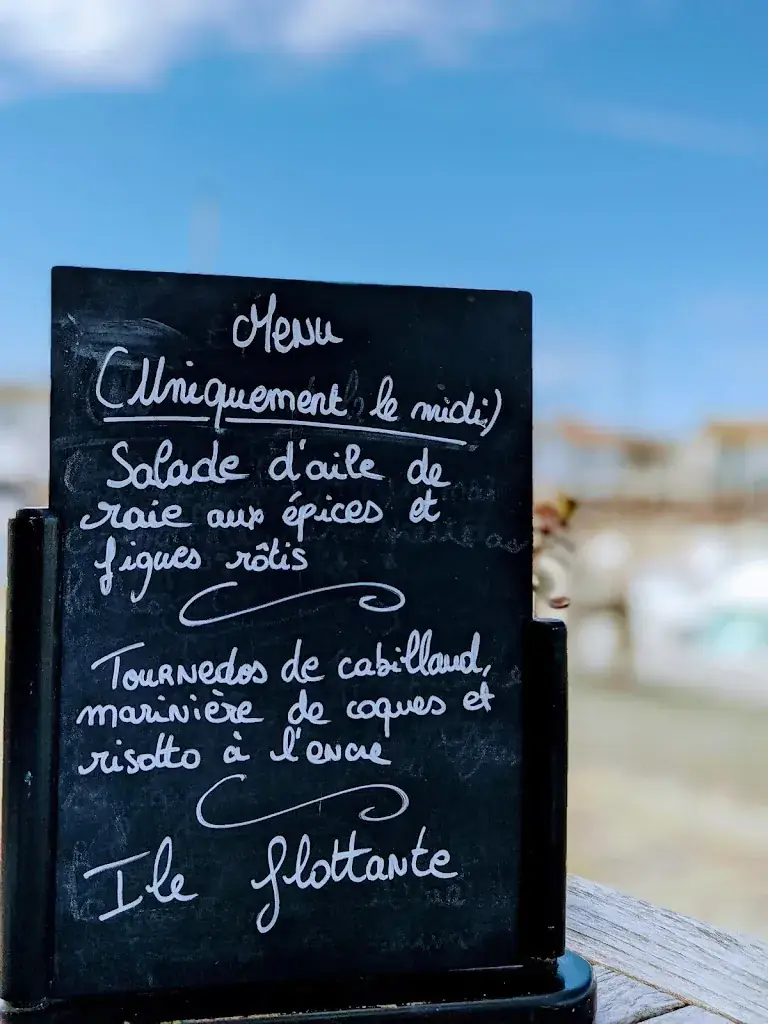 Menu
(Uniquement le midi)
Salade d'aile de
raie aux épices et
figues rôtis
Tournedos de cabillaud,
marinière de coques et
risotto à l'encre
Ile flottante